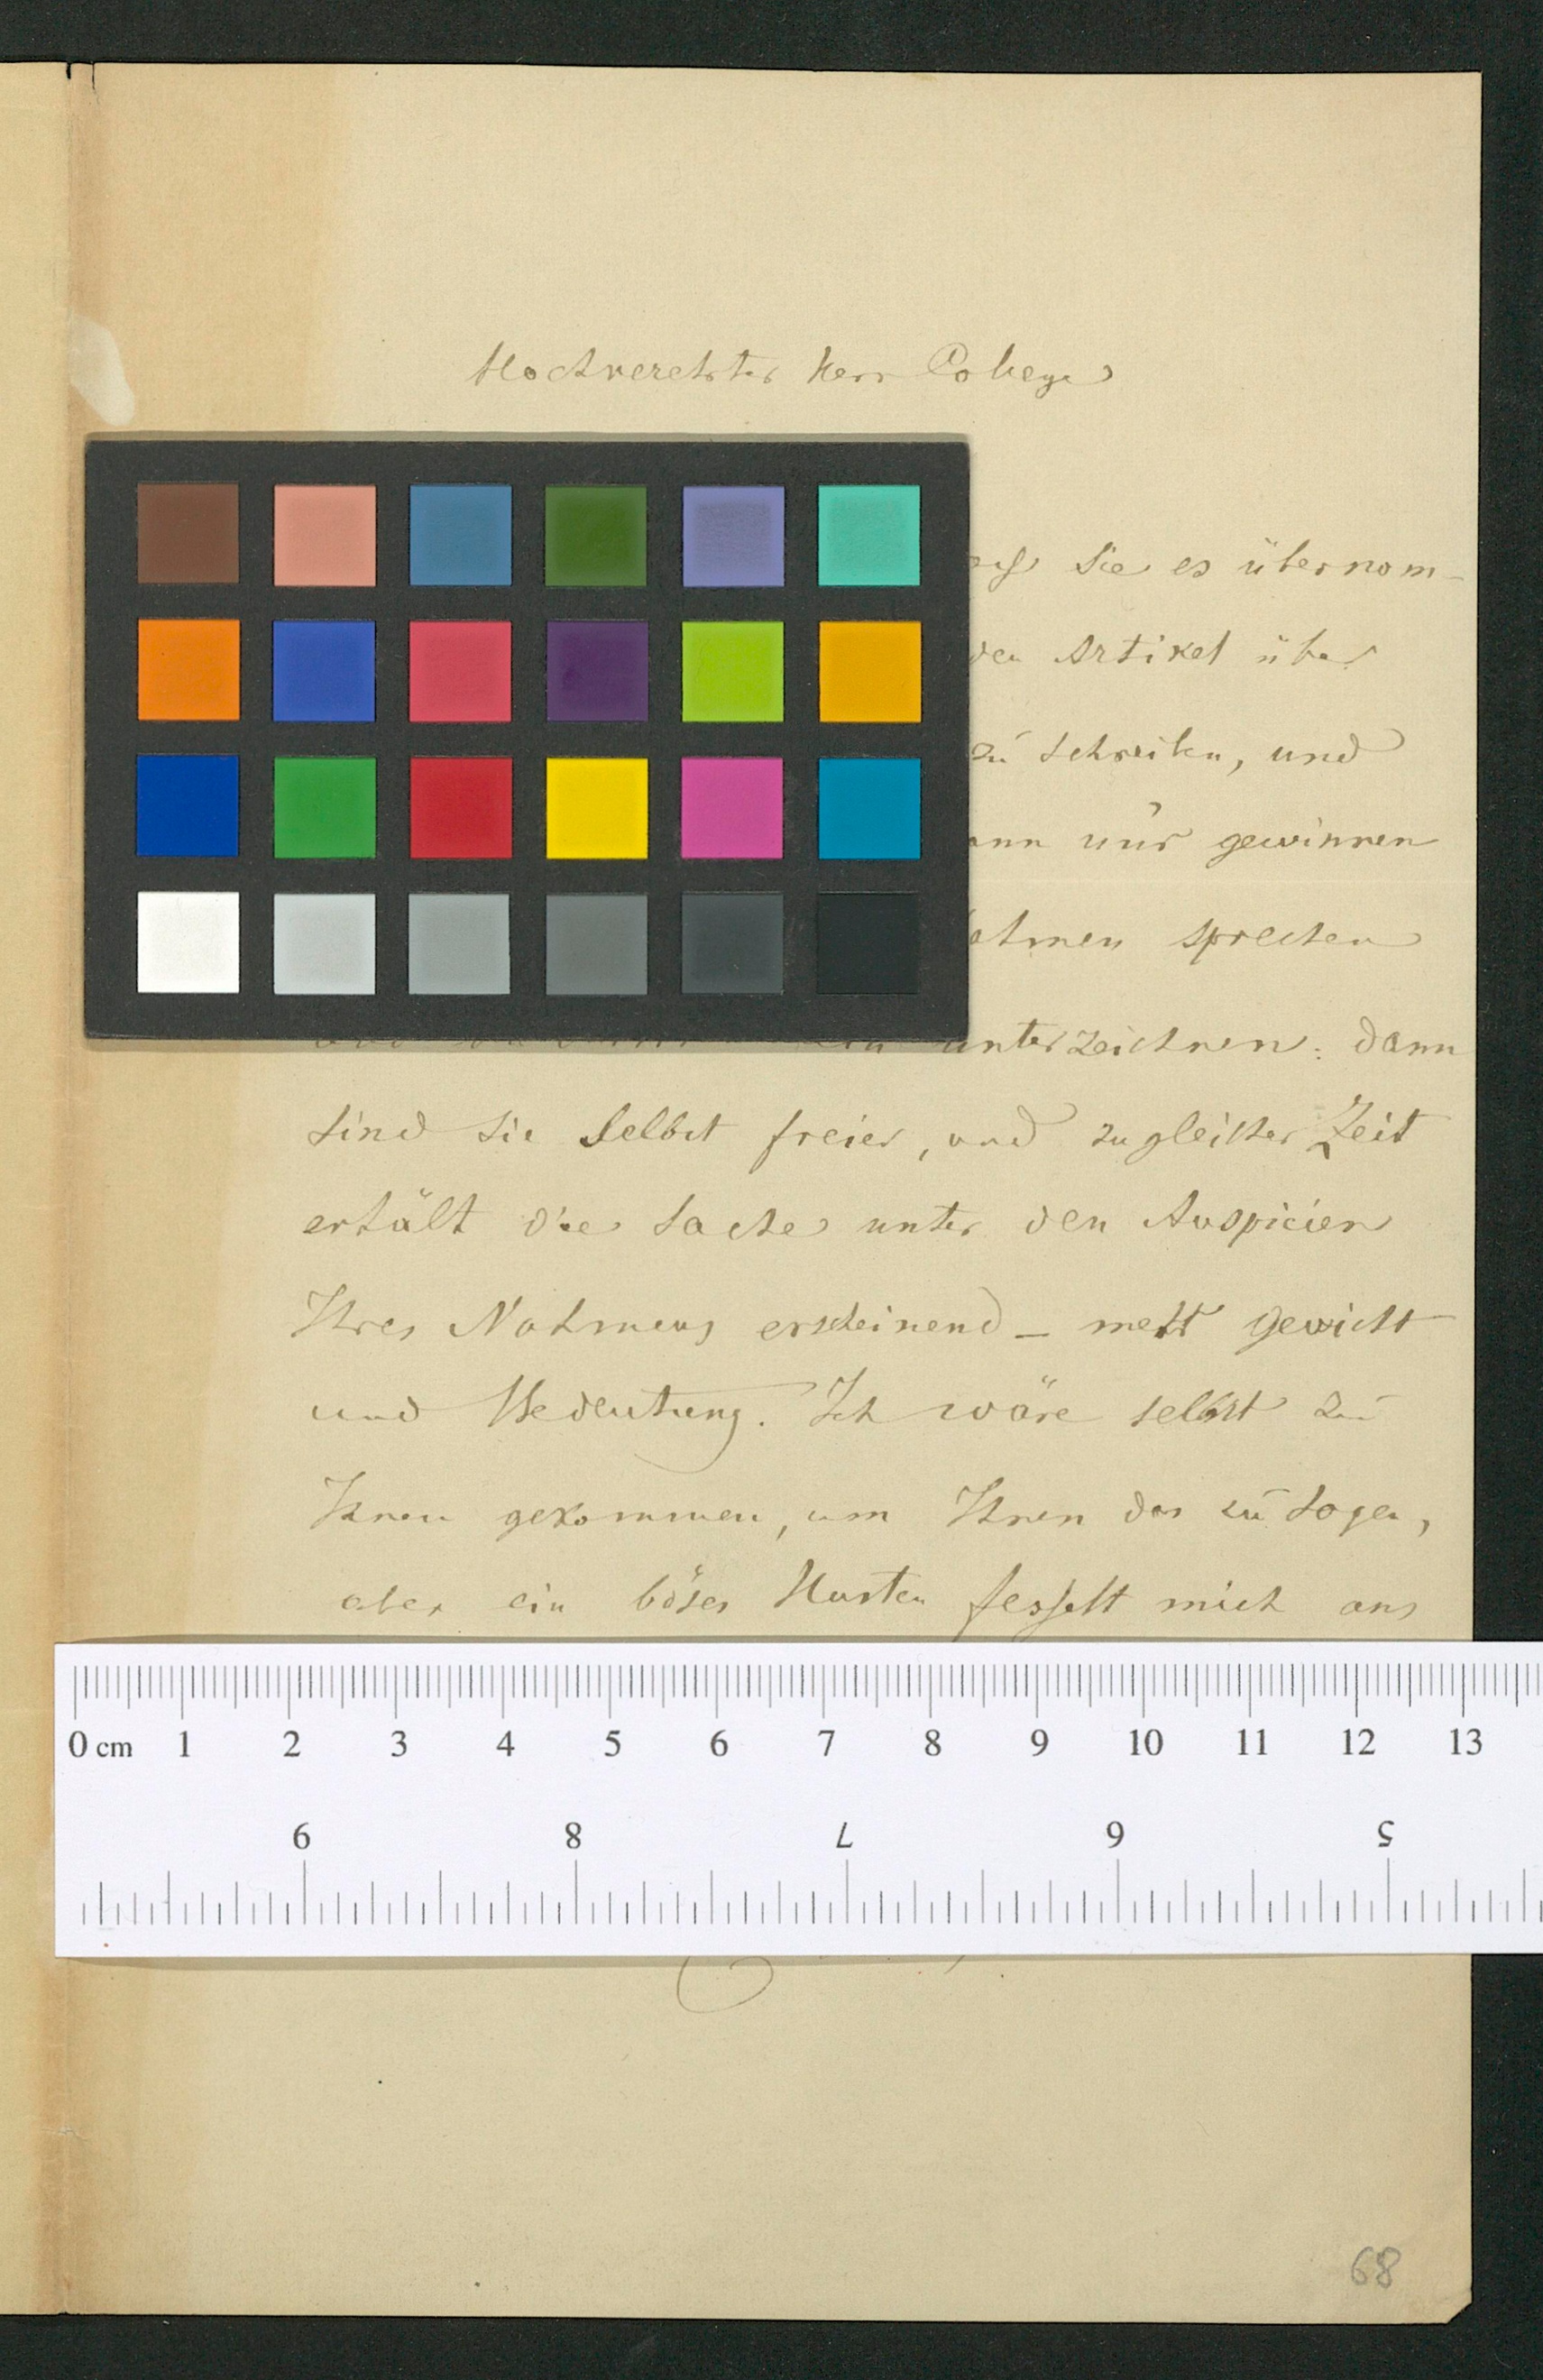 Hochverehrter Herr College
Sie es übernom-
den Artikel über
zu schreiben, und
nur gewinnen
sprechen
unterzeichnen: dann
sind Sie selbst freier, und zu gleicher Zeit
erhält die Sache unter den Auspicien
Ihres Nahmens erscheinend – mehr Gewicht
und Bedeutung. Ich wäre selbst zu
Ihnen gekommen, um Ihnen das zu sagen,
aber ein böser Husten fesselt mich ans
0 cm 1 2 3 4 5 6 7 8 9 10 11 12 13
9 8 7 6 5
68